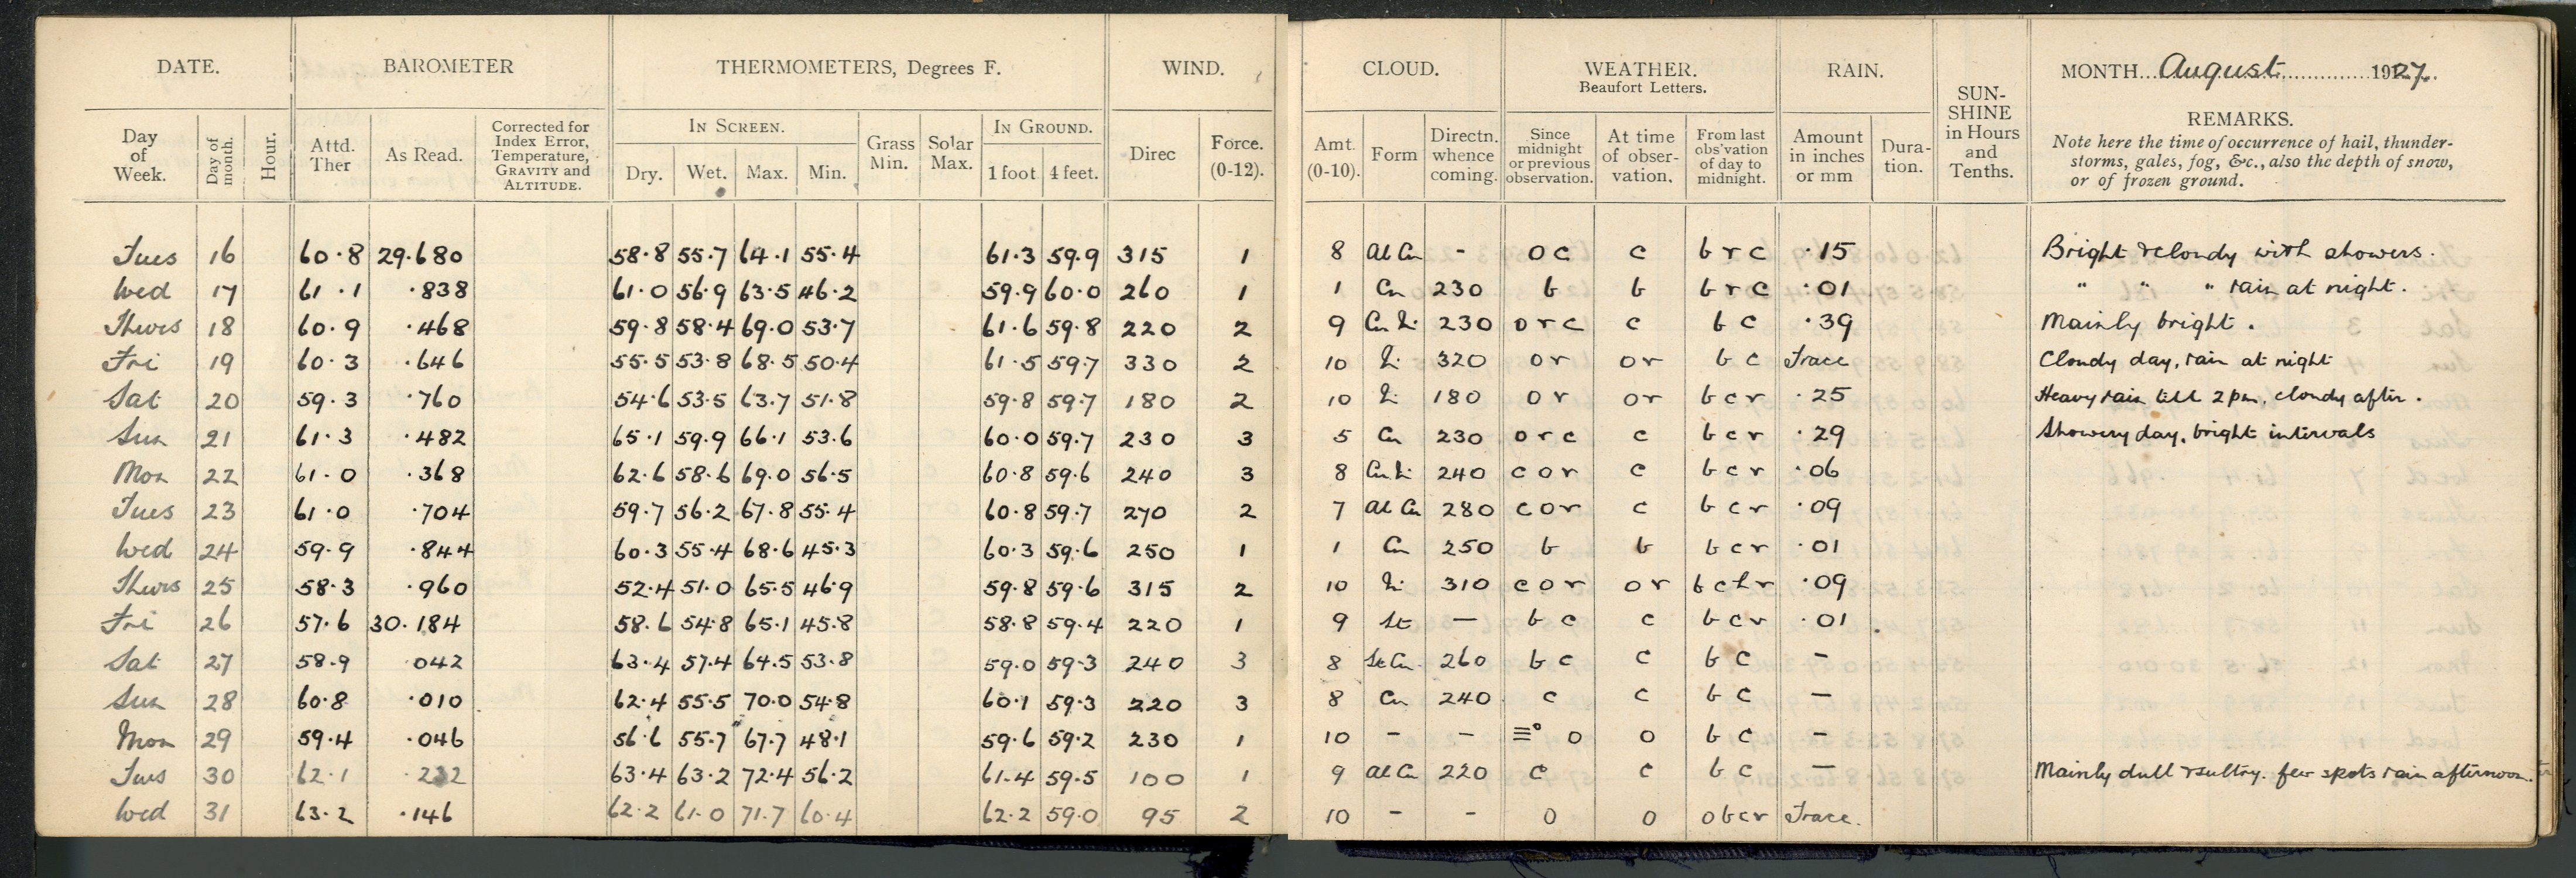 DATE. BAROMETER THERMOMETERS, Degrees F. WIND. CLOUD. WEATHER. Beaufort Letters. RAIN. SUN-SHINE in Hours and Tenths. MONTH...August...1927.
REMARKS.
Note here the time of occurrence of hail, thunder-
storms, gales, fog, &c., also the depth of snow,
or of frozen ground.
Day of Week. Day of month. Hour. Attd. Ther As Read. Corrected for Index Error, Temperature, GRAVITY and ALTITUDE. IN SCREEN. Dry. Wet. Max. Min. Grass Min. Solar Max. IN GROUND. 1 foot 4 feet. Direc Force. (0-12). Amt. (0-10). Form Directn. whence coming. Since midnight or previous observation. At time of obser-vation. From last obs'vation of day to midnight. Amount in inches or mm Dura-tion.
Tues 16 60.8 29.680 58.8 55.7 64.1 55.4 61.3 59.9 315 1 8 Al Cu - o c c b r c .15 Bright & cloudy with showers.
Wed 17 61.1 .838 61.0 56.9 63.5 46.2 59.9 60.0 260 1 1 Cu 230 b b b r c .01 " " " rain at night.
Thurs 18 60.9 .468 59.8 58.4 69.0 53.7 61.6 59.8 220 2 9 Cu Ni 230 o r c c b c .39 Mainly bright.
Fri 19 60.3 .646 55.5 53.8 68.5 50.4 61.5 59.7 330 2 10 Ni 320 o r o r b c Trace Cloudy day, rain at night
Sat 20 59.3 .760 54.6 53.5 63.7 51.8 59.8 59.7 180 2 10 Ni 180 o r o r b c r .25 Heavy rain till 2pm, cloudy after.
Sun 21 61.3 .482 65.1 59.9 66.1 53.6 60.0 59.7 230 3 5 Cu 230 o r c c b c r .29 Showery day, bright intervals
Mon 22 61.0 .368 62.6 58.6 69.0 56.5 60.8 59.6 240 3 8 Cu Ni 240 c o r c b c r .06
Tues 23 61.0 .704 59.7 56.2 67.8 55.4 60.8 59.7 270 2 7 Al Cu 280 c o r c b c r .09
Wed 24 59.9 .844 60.3 55.4 68.6 45.3 60.3 59.6 250 1 1 Cu 250 b b b c r .01
Thurs 25 58.3 .960 52.4 51.0 65.5 46.9 59.8 59.6 315 2 10 Ni 310 c o r o r b c h r .09
Fri 26 57.6 30.184 58.6 54.8 65.1 45.8 58.8 59.4 220 1 9 St — b c c b c r .01
Sat 27 58.9 .042 63.4 57.4 64.5 53.8 59.0 59.3 240 3 8 St Cu 260 b c c b c —
Sun 28 60.8 .010 62.4 55.5 70.0 54.8 60.1 59.3 220 3 8 Cu 240 c c b c —
Mon 29 59.4 .046 56.6 55.7 67.7 48.1 59.6 59.2 230 1 10 - - ≡° o o b c —
Tues 30 62.1 .232 63.4 63.2 72.4 56.2 61.4 59.5 100 1 9 Al Cu 220 c c b c — Mainly dull & sultry. few spots rain afternoon.
Wed 31 63.2 .146 62.2 61.0 71.7 60.4 62.2 59.0 95 2 10 - - o o o b c r Trace.